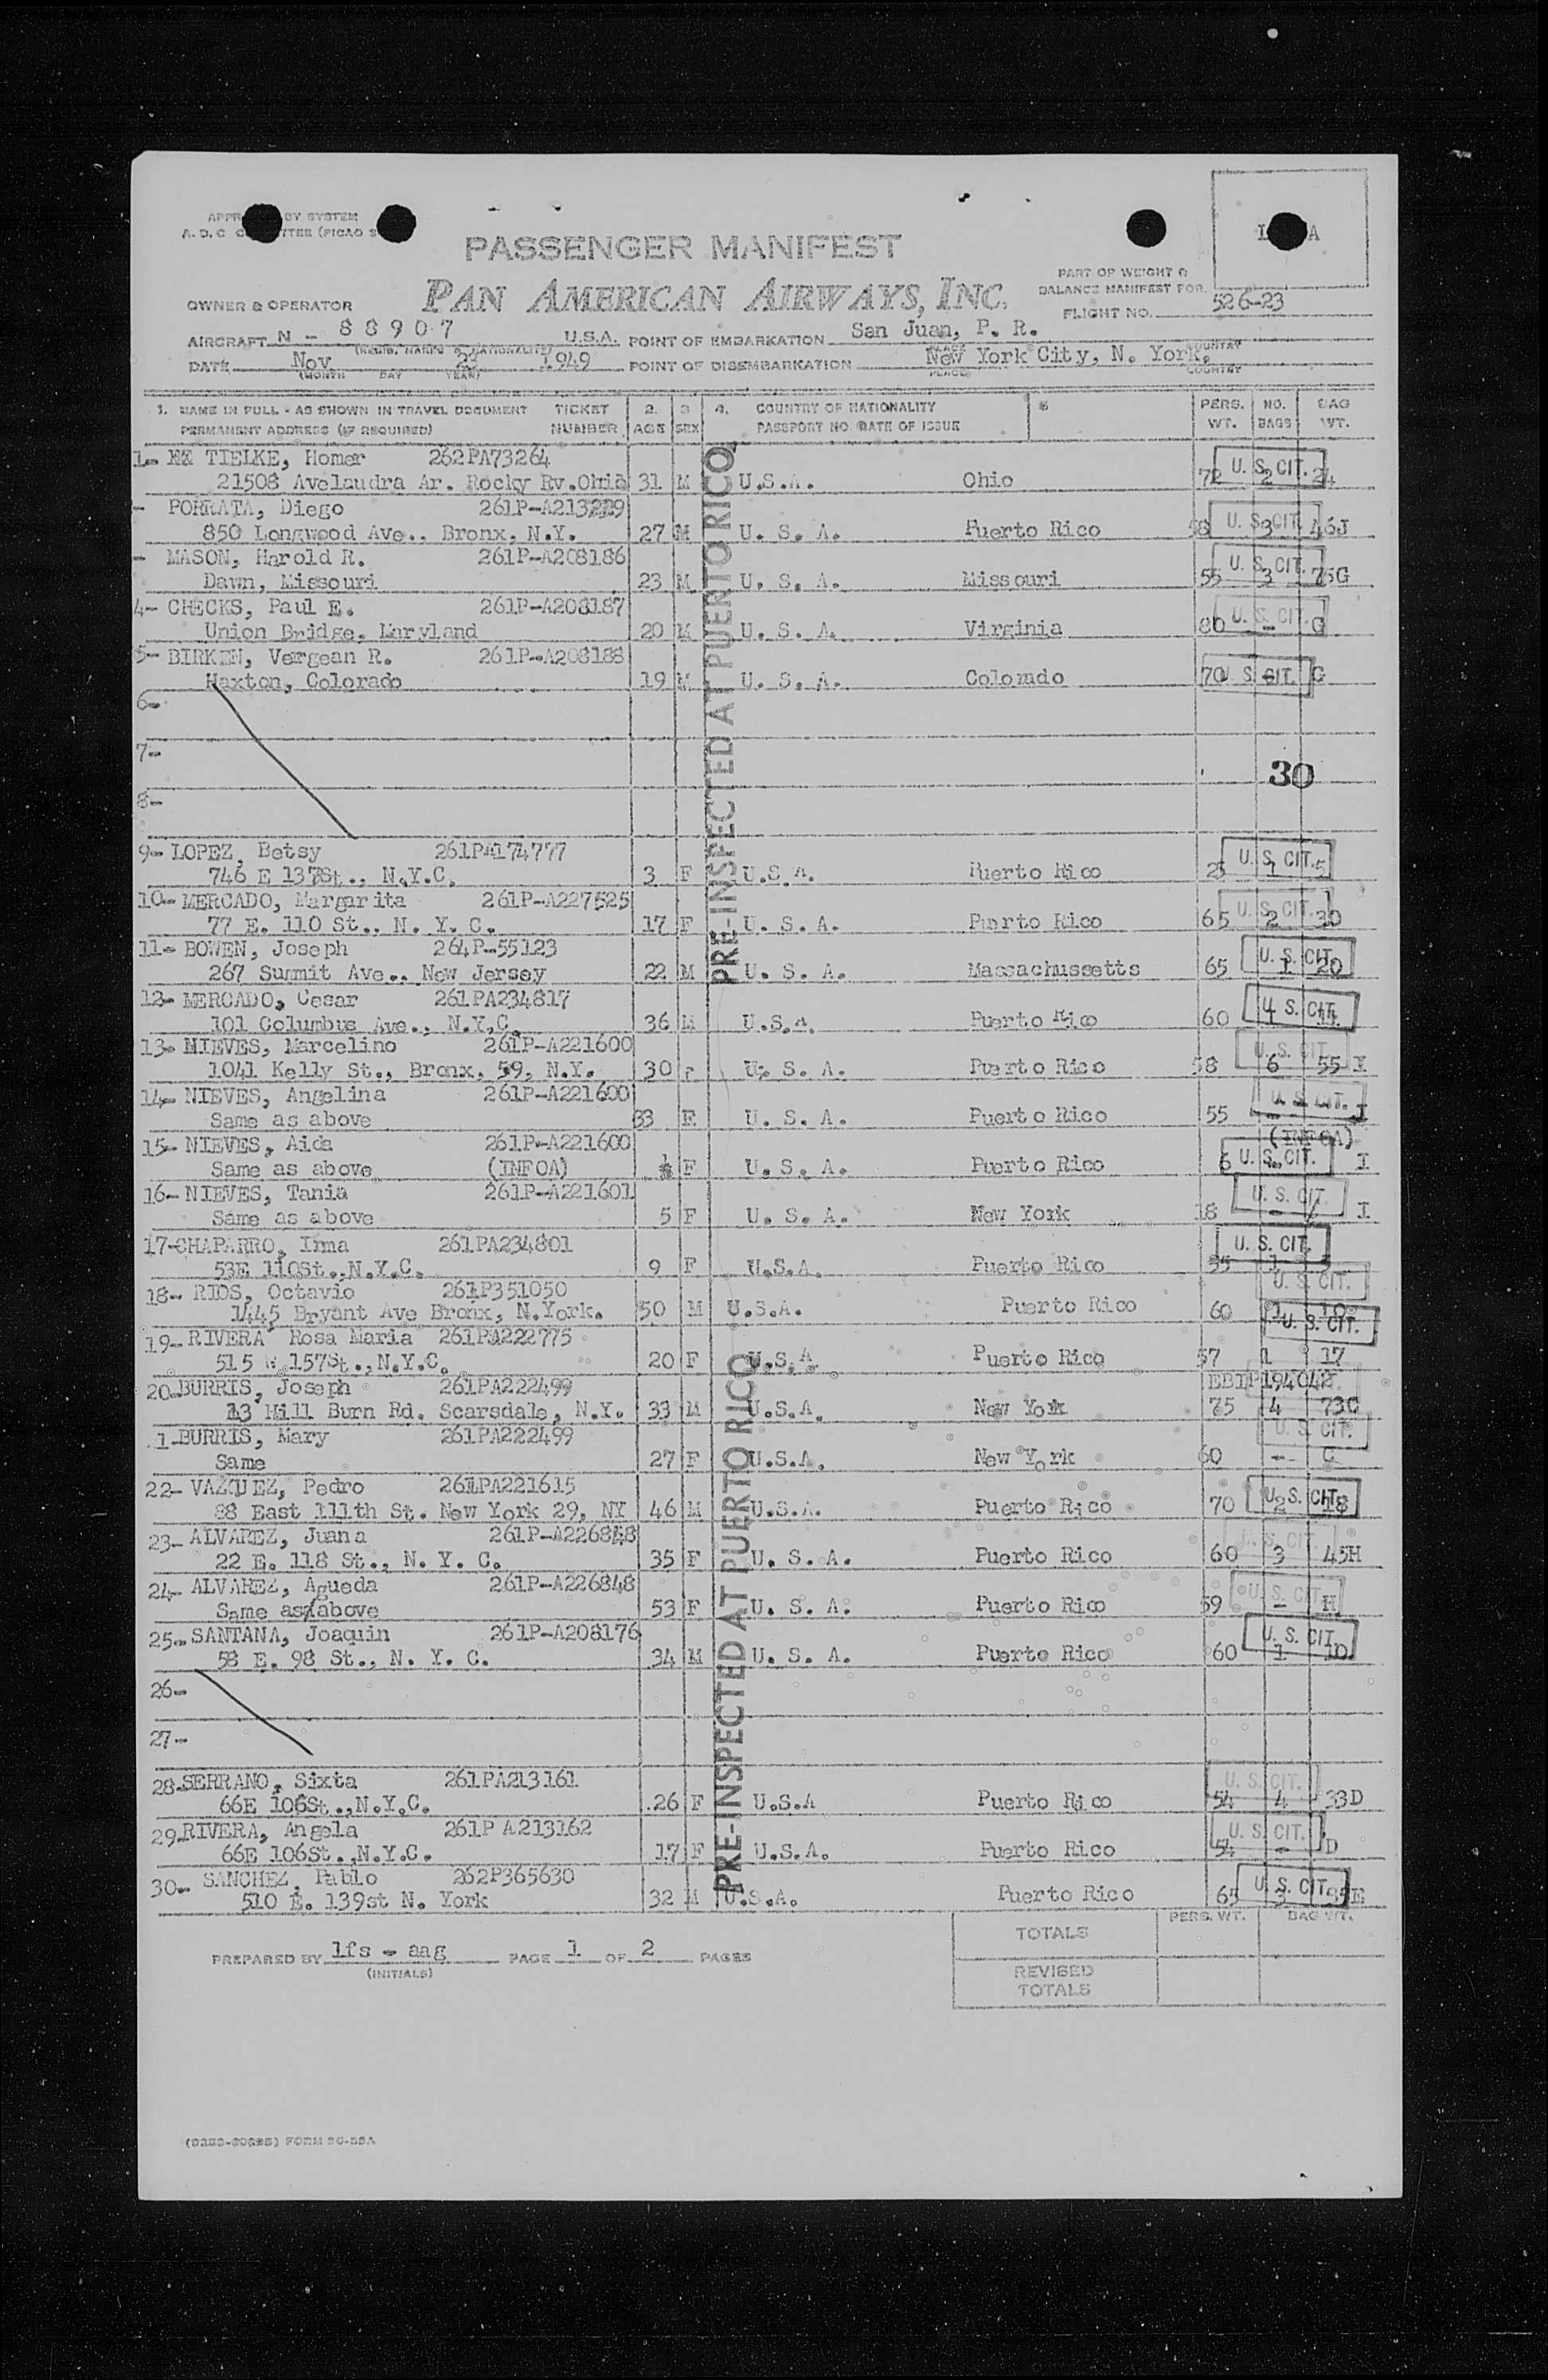 PASSENGER MANIFEST
PAN AMERICAN AIRWAYS, INC.
PART OF WEIGHT &
BALANCE MANIFEST FOR
OWNER & OPERATOR
FLIGHT NO. 526-23
AIRCRAFT N - 88907 U.S.A. POINT OF EMBARKATION San Juan, P. R.
DATE Nov 2 1949 POINT OF DISEMBARKATION New York City, N. York.
(MONTH DAY YEAR) PLACE COUNTRY
1. NAME IN FULL - AS SHOWN IN TRAVEL DOCUMENT TICKET 2. 3 4. COUNTRY OF NATIONALITY PERS. NO. BAG
PERMANENT ADDRESS (IF REQUIRED) NUMBER AGE SEX PASSPORT NO. DATE OF ISSUE WT. BAGS WT.
PRE-INSPECTED AT PUERTO RICO
1- TIELKE, Homer 262PA73264 U. S. CIT.
21508 Avelaudra Ar. Rocky Rv.Ohio 31 M U.S.A. Ohio 72 2 24
- PORRATA, Diego U. S. CIT.
850 Longwood Ave., Bronx, N.Y. 27 M U. S. A. Puerto Rico 3 46J
- MASON, Harold R. 261P-A208186 U. S. CIT.
Dawn, Missouri 23 M U. S. A. Missouri 55 3 75G
4- CHECKS, Paul E. 261P-A208187 U. S. CIT.
Union Bridge, Maryland 20 M U. S. A. Virginia - G
5- BIRKEN, Vergean R. 261P-A208188
Haxton, Colorado 19 M U. S. A. Colorado 70 U. S. CIT. - G
6-
7-
30
8-
9- LOPEZ, Betsy 261PA174777 U. S. CIT.
746 E 137St., N.Y.C. 3 F U.S.A. Puerto Rico 25 1 5
10- MERCADO, Margarita 261P-A227525 U. S. CIT.
77 E. 110 St., N. Y. C. 17 F U. S. A. Puerto Rico 65 2 30
11- BOWEN, Joseph 264P-55123 U. S. CIT.
267 Summit Ave., New Jersey 22 M U. S. A. Massachussetts 65 1 20
12- MERCADO, Cesar 261PA234817 U. S. CIT.
101 Columbus Ave., N.Y.C. 36 M U.S.A. Puerto Rico 60
13- NIEVES, Marcelino 261P-A221600 U. S. CIT.
1041 Kelly St., Bronx, 59, N.Y. 30 U. S. A. Puerto Rico 58 6 55 I
14- NIEVES, Angelina 261P-A221600 U. S. CIT.
Same as above 33 F U. S. A. Puerto Rico 55 - I
15- NIEVES, Aida 261P-A221600 (INFOA)
Same as above (INFOA) F U. S. A. Puerto Rico 6 U. S. CIT. I
16- NIEVES, Tania 261P-A221601 U. S. CIT.
Same as above 5 F U. S. A. New York 18 - I
17-CHAPARRO, Irma 261PA234801 U. S. CIT.
53E 110St.,N.Y.C. 9 F U.S.A. Puerto Rico 55 1
18- RIOS, Octavio 261P351050 U. S. CIT.
1445 Bryant Ave Bronx, N.York. 50 M U.S.A. Puerto Rico 60
19- RIVERA Rosa Maria 261PA222775 U. S. CIT.
515 W 157St.,N.Y.C. 20 F U.S.A Puerto Rico 57 1 17
20-BURRIS, Joseph 261PA222499
13 Mill Burn Rd. Scarsdale, N.Y. 33 M U.S.A. New York 75 4 73C
1-BURRIS, Mary 261PA222499 U. S. CIT.
Same 27 F U.S.A. New York 60 -- C
22- VAZQUEZ, Pedro 261PA221615 U. S. CIT.
88 East 111th St. New York 29, NY 46 M U.S.A. Puerto Rico 70 2 18
23- ALVAREZ, Juana 261P-A226848 U. S. CIT.
22 E. 118 St., N. Y. C. 35 F U. S. A. Puerto Rico 60 3 45H
24- ALVAREZ, Agueda 261P-A226848 U. S. CIT.
Same as/above 53 F U. S. A. Puerto Rico 59 - H
25- SANTANA, Joaquin 261P-A208176 U. S. CIT.
58 E. 98 St., N. Y. C. 34 M U. S. A. Puerto Rico 60 1 10
26-
27-
PRE-INSPECTED AT PUERTO RICO
28-SERRANO, Sixta 261PA213161 U. S. CIT.
66E 106St.,N.Y.C. 26 F U.S.A Puerto Rico 54 4 33D
29-RIVERA, Angela 261P A213162 U. S. CIT.
66E 106St.,N.Y.C. 17 F U.S.A. Puerto Rico 54 - D
30- SANCHEZ, Pablo 262P365630 U. S. CIT.
510 E. 139st N. York 32 M U.S.A. Puerto Rico 65 3 85E
PERS. WT. BAG WT.
TOTALS
PREPARED BY lfs - aag PAGE 1 OF 2 PAGES
(INITIALS)
REVISED
TOTALS